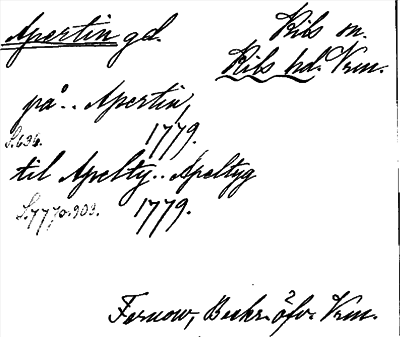 Apertin gd.
Kils sn.
Kils hd. Vrm.
på.. Apertin,
S. 634. 1779.
til Apelty.. Apeltyg
S. 770. 903. 1779.
Fernow, Beskr. öfv. Vrm.